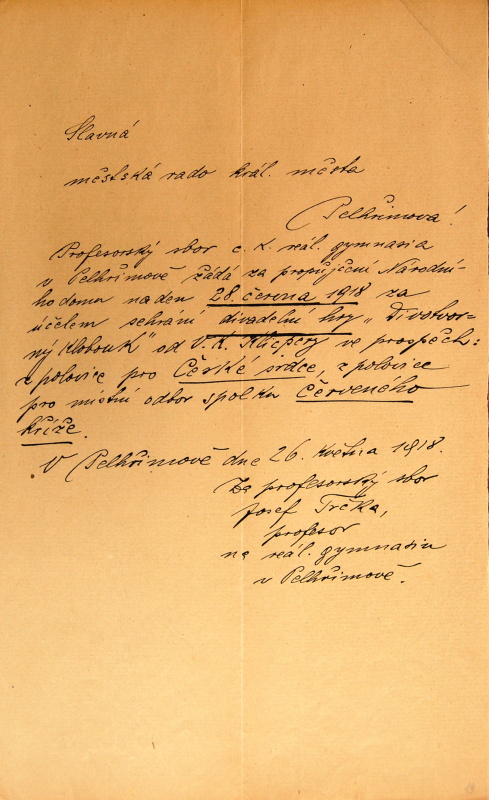 Slavná
městská rado král. města
Pelhřimova!
Profesorský sbor c. k. reál. gymnasia
v Pelhřimově žádá za propůjčení Národní-
ho domu na den 28. června 1918 za
účelem sehrání divadelní hry „Divotvor-
ný klobouk" od V. K. Klicpery ve prospěch:
z polovice pro České srdce, z polovice
pro místní odbor spolku Červeného
kříže.
V Pelhřimově dne 26. května 1918.
Za profesorský sbor
Josef Trčka,
profesor
na reál. gymnasiu
v Pelhřimově.